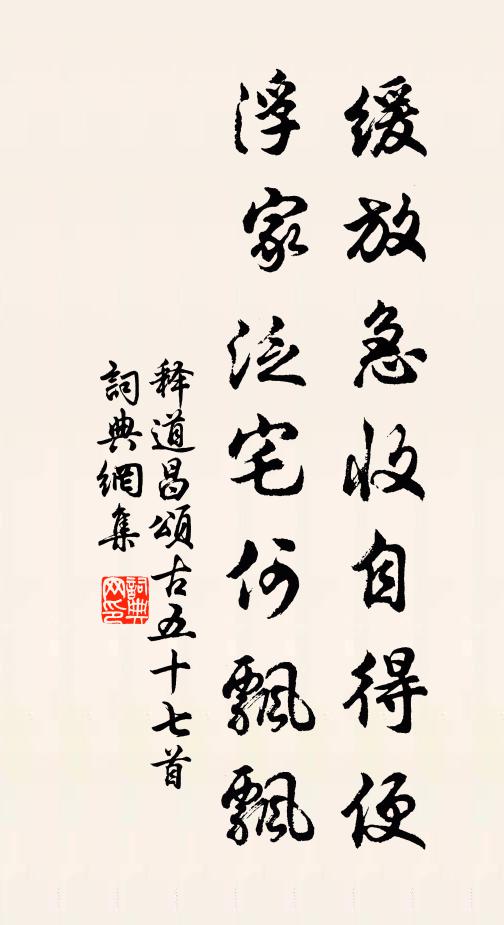 缓放急收自得便
浮家泛宅何飘飘
释道昌颂古五十七首
词典网集
词典网印